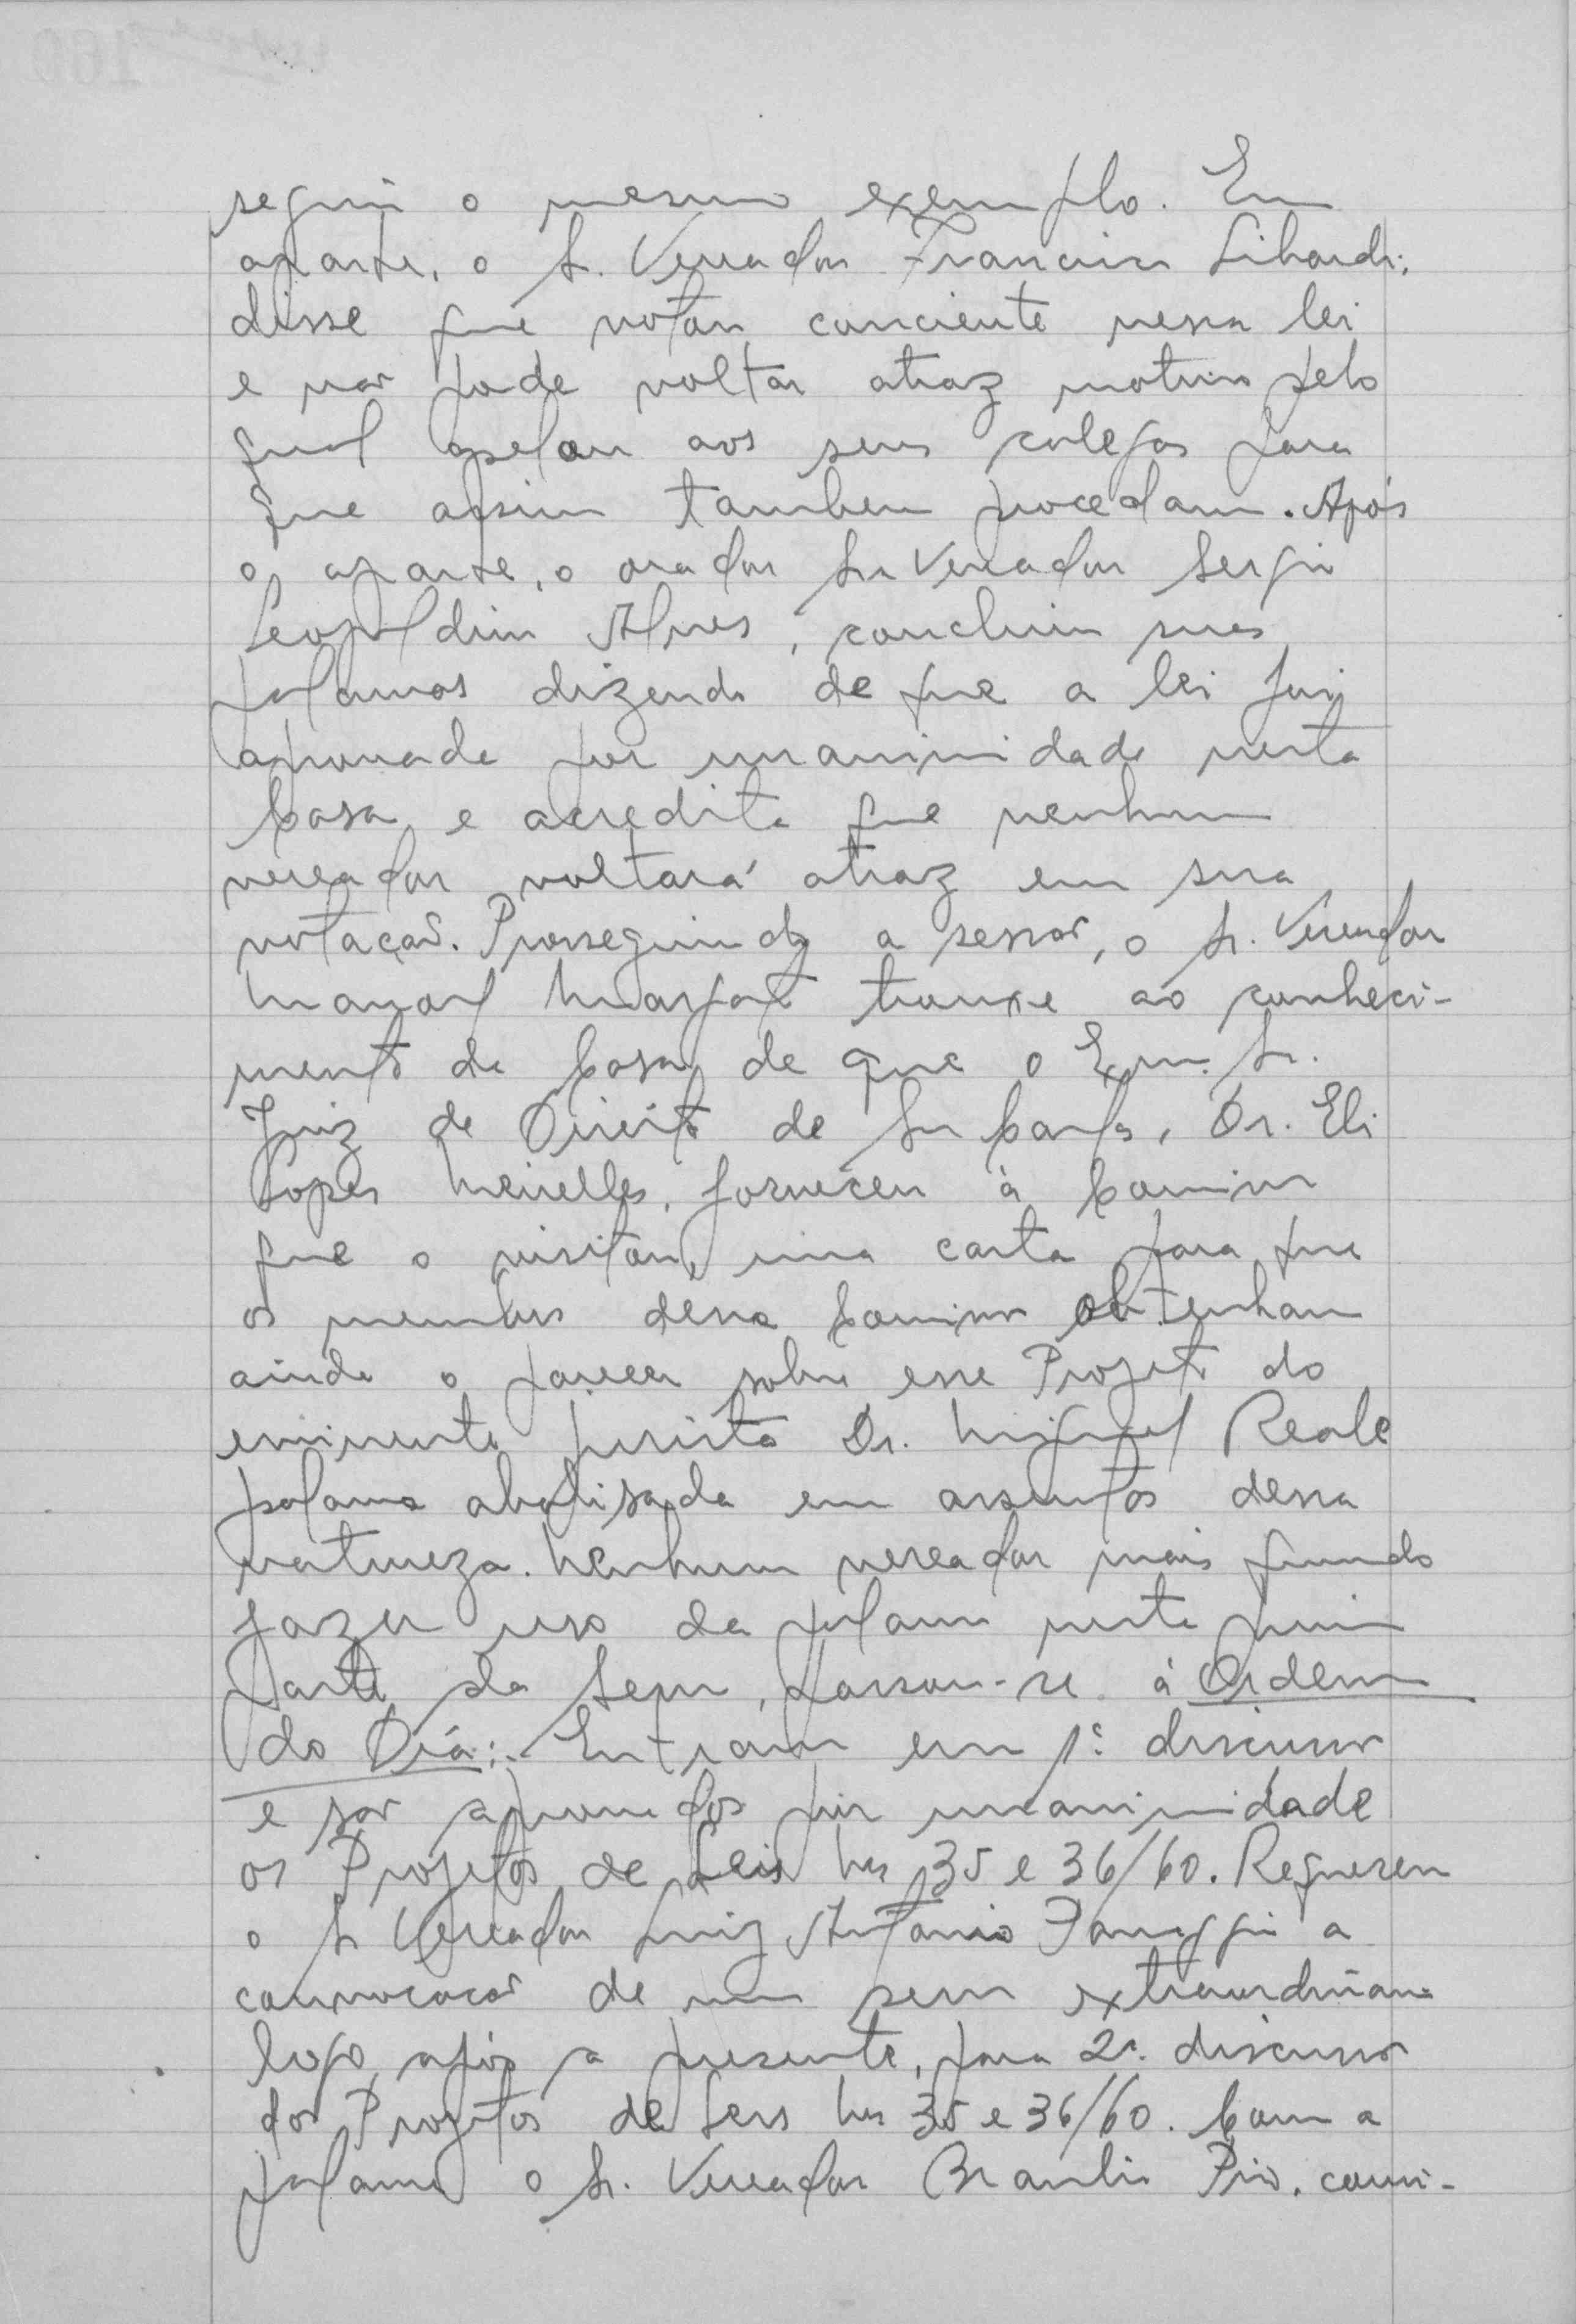 seguir o mesmo exemplo. Em
aparte, o Sr. Vereador Francisco Libardi,
disse que votou conciente nessa lei
e não pode voltar atraz motivo pelo
qual apelou aos seus colegas para
que assim tambem procedam. Após
o aparte, o orador Sr Vereador Sergio
Leopoldino Alves, concluiu suas
palavras dizendo de que a lei foi
aprovada por unanimidade nesta
Casa e acredita que nenhum
vereador voltará atraz em sua
votação. Prosseguindo a sessão, o Sr. Vereador
trouxe ao conheci-
mento da Casa de que o Exmo. Sr.
Juiz de Direito de São Carlos, Dr. Eli
Lopes Meirelles, forneceu à Comissão
que o visitou, uma carta para que
os membros dessa Comissão obtenham
ainda o parecer sobre esse Projeto do
eminente jurista Dr. Miguel Reale
palavra abalisada em assuntos dessa
natureza. Nenhum vereador mais querendo
fazer uso da palavra nesta primeira
parte da Sessão, passou-se à Ordem
do Dia:- Entram em 1ª discussão
e são aprovados por unanimidade
os Projetos de Leis nrs 35 e 36/60. Requereu
o Sr Vereador Luiz Antonio a
convocação de uma sessão extraordinaria
logo após a presente, para 2ª. discussão
dos Projetos de Leis nrs 35 e 36/60. Com a
palavra o Sr. Vereador Braulio Pio, comi-